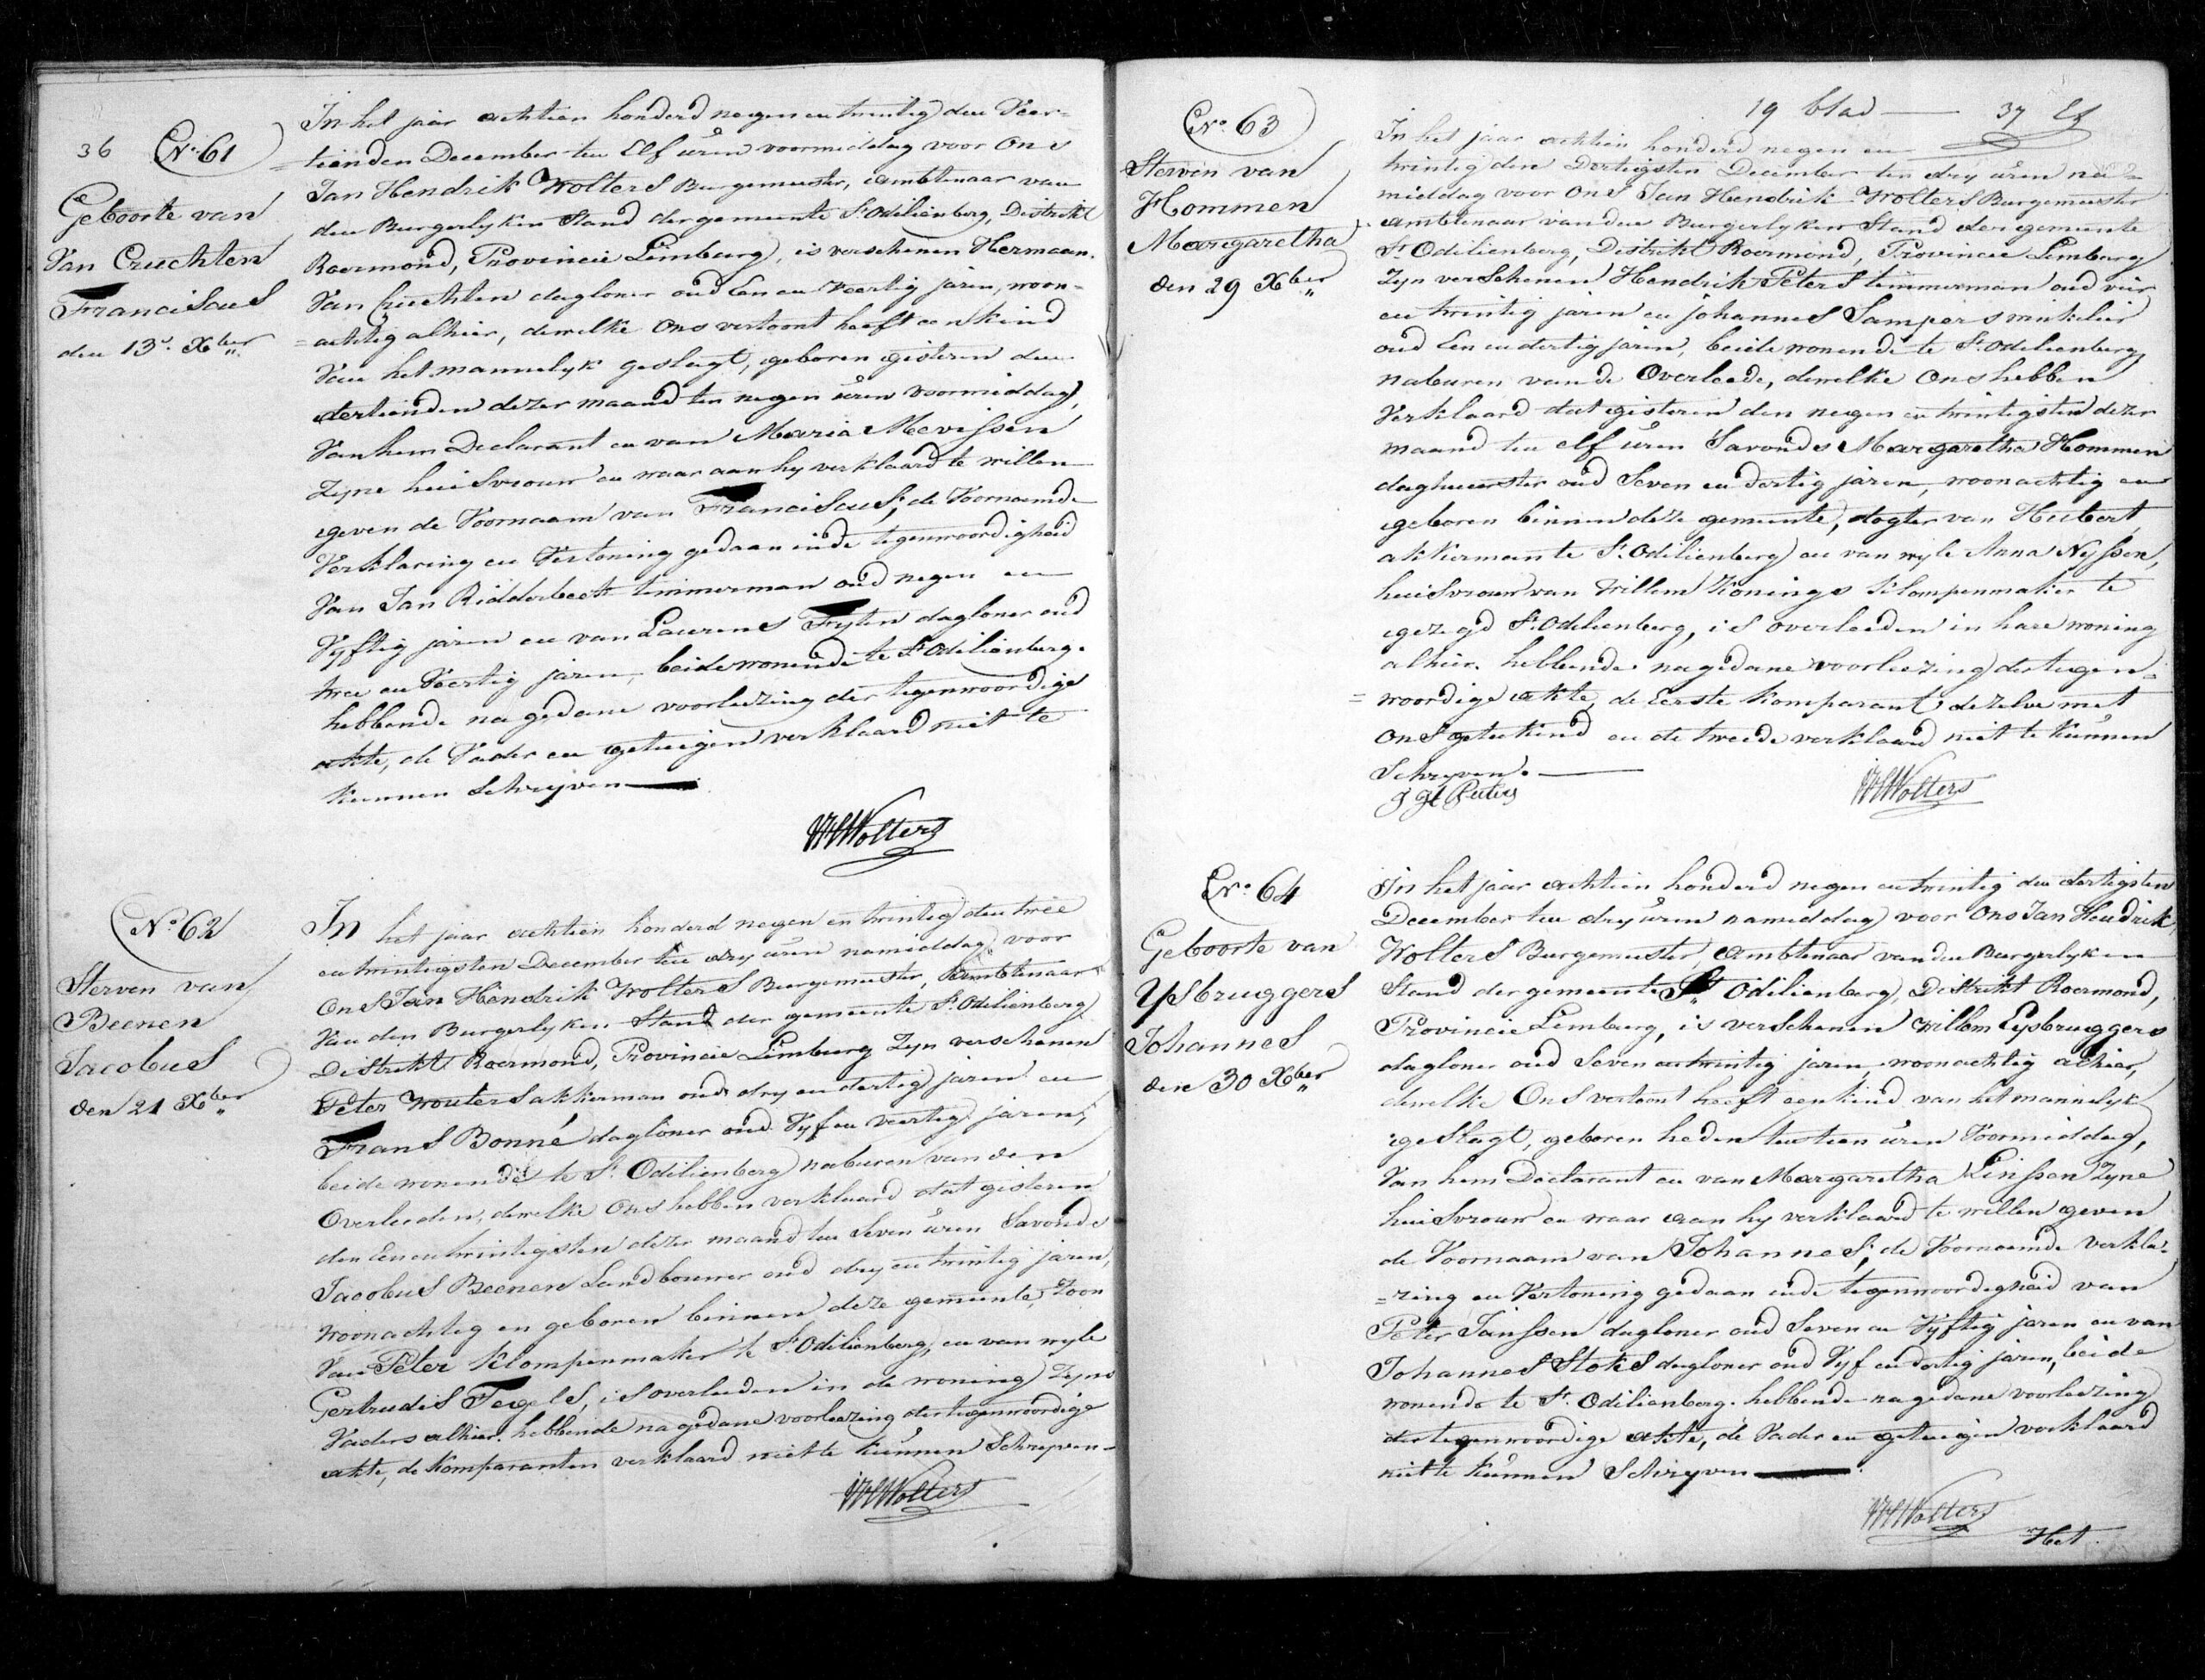 36 No. 61
Geboorte van
Van Cruchten
Franciscus
den 13e. Xber
In het jaar achtien honderd negen en twintig den Veer-
tienden December ten Elf uren voormiddag voor Ons
Jan Hendrik Wolters Burgemeester, Ambtenaar van
den Burgerlyken Stand der gemeente St. Odilienberg, Distrikt
Roermond, Provincie Limburg, is verschenen Hermaan
Van Cruchten dagloner oud Een en Veertig jaren, woon-
=achtig alhier, dewelke Ons vertoont heeft een kind
Van het mannelyk geslagt, geboren gisteren den
dertienden dezer maand ten negen uren voormiddag,
Van hem Declarant en van Maria Mevissen
Zyne huisvrouw en waar aan hy verklaard te willen
geven de Voornaam van Franciscus; de Voornoemde
Verklaring en Vertoning gedaan in de tegenwoordigheid
Van Jan Ridderbeek timmerman oud negen en
Vyftig jaren en van Laurens Fryten dagloner oud
twee en Veertig jaren, beide wonende te St. Odilienberg.
hebbende na gedane voorleezing der tegenwoordige
akte, de Vader en getuigen verklaard niet te
kunnen Schryven
JHWolters
No. 62
Sterven van
Beenen
Jacobus
den 21 Xber
In het jaar achtien honderd negen en twintig den twee
en twintigsten December ten dry uren namiddag voor
Ons Jan Hendrik Wolters Burgemeester, Ambtenaar
Van den Burgerlyken Stand der gemeente St. Odilienberg
Distrikt Roermond, Provincie Limburg Zyn verschenen
Peter Wouters akkerman oud dry en dertig jaren en
Frans Bonné dagloner oud Vyf en veertig jaren,
beide wonende te St. Odilienberg naburen van den
Overleeden, dewelke Ons hebben verklaard dat gisteren
den Een en twintigsten dezer maand ten Seven uren Savonds
Jacobus Beenen Landbouwer oud dry en twintig jaren,
woonachtig en geboren binnen deze gemeente, Zoon
Van Peter Klompenmaker te St. Odilienberg, en van wyle
Gertrudis Tegels, is overleeden in de woning Zyns
Vaders alhier. hebbende na gedane voorleezing der tegenwoordige
akte, de Komparanten verklaard niet te kunnen Schryven
JHWolters
19 blad — 37
No. 63
Sterven van
Hommen
Margaretha
den 29 Xber
In het jaar achtien honderd negen en
twintig den Dertigsten December ten dry uren na=
middag voor Ons Jan Hendrik Wolters Burgemeester
Ambtenaar van den Burgerlyken Stand der gemeente
St. Odilienberg, Distrikt Roermond, Provincie Limburg
Zyn verschenen Hendrik Peters timmerman oud vier
en twintig jaren en Johannes Sampers winkelier
oud Een en dertig jaren, beide wonende te St. Odilienberg,
naburen van de Overleede, dewelke Ons hebben
Verklaard dat gisteren den negen en twintigsten dezer
maand ten elf uren Savonds Margaretha Hommen
daghuurster oud Seven en dertig jaren, woonachtig en
geboren binnen deze gemeente, dogter van Hubert
akkerman te St. Odilienberg en van wyle Anna Nyssen,
huisvrouw van Willem Konings Klompenmaker te
gezegd St. Odilienberg, is overleeden in hare woning
alhier. hebbende na gedane voorleezing der tegen-
=woordige akte, de Eerste Komparant dezelve met
Ons geteekend en de tweede verklaard niet te kunnen
Schryven.
Peeters
JHWolters
No. 64
Geboorte van
Ysbruggers
Johannes
den 30 Xber
In het jaar achtien honderd negen en twintig den dertigsten
December ten dry uren namiddag voor Ons Jan Hendrik
Wolters Burgemeester, Ambtenaar van den Burgerlyken
Stand der gemeente St. Odilienberg, Distrikt Roermond,
Provincie Limburg, is verschenen Willem Eysbruggers
dagloner oud Seven en twintig jaren woonachtig alhier,
dewelke Ons vertoont heeft een kind van het mannelyk
geslagt, geboren heden ten tien uren Voormiddag,
Van hem Declarant en van Margaretha Linssen Zyne
huisvrouw en waar aan hy verklaard te willen geven
de Voornaam van Johannes; de Voornoemde Verkla-
=ring en Vertoning gedaan in de tegenwoordigheid van
Peter Janssen dagloner oud Seven en Vyftig jaren en van
Johannes Stoks dagloner oud Vyf en dertig jaren, beide
wonende te St. Odilienberg. hebbende na gedane voorleezing
der tegenwoordige akte, de Vader en getuigen verklaard
niet te kunnen Schryven
JHWolters
Het